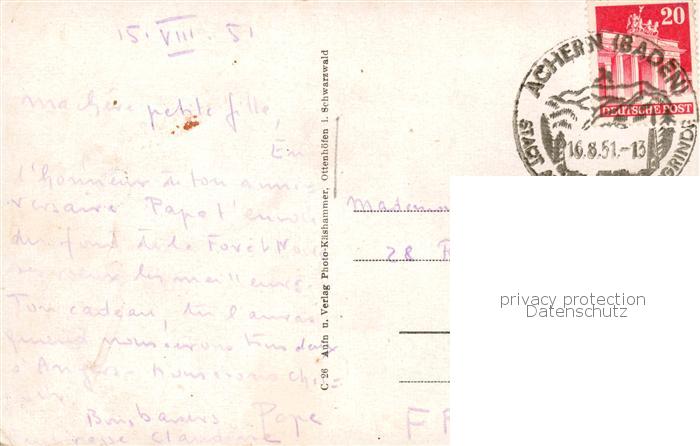 15. VIII. 51
Ma chère petite fille,
En
l'honneur de ton anni-
versaire Papa t'envoie
du fond de la Forêt Noire
ses vœux les meilleurs.
Ton cadeau, tu l'auras
quand nous serons tous deux
à Angers.
Bons baisers Papa
Claudine
C-26 Aufn u. Verlag Photo-Käshammer, Ottenhöfen i. Schwarzwald
20
DEUTSCHE POST
ACHERN (BADEN)
STADT
16.8.51.-13
GRINDE
Madem
28
privacy protection
Datenschutz